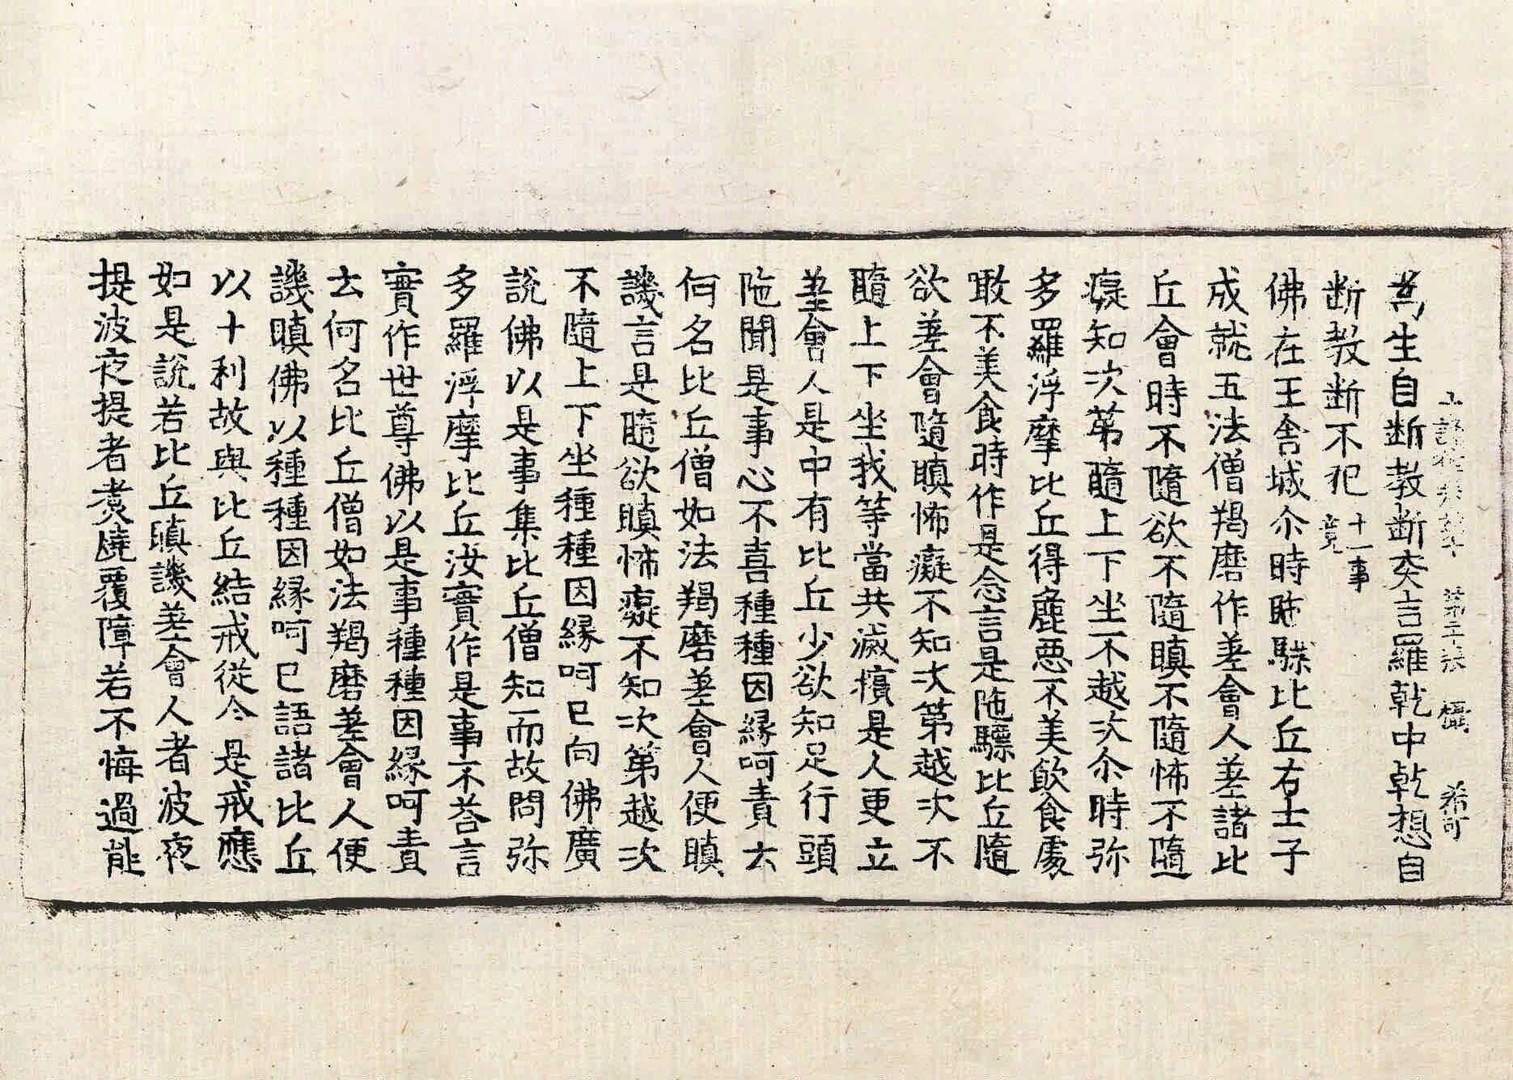 十誦律卷第十　第二張　攝　希可
為生自斷教斷突言羅乹中乹想自
斷教斷不犯十一事竟
佛在王舍城尒時陁驃比丘右士子
成就五法僧羯磨作差會人差諸比
丘會時不隨欲不隨瞋不隨怖不隨
癡知次第隨上下坐不越次尒時弥
多羅浮摩比丘得麁惡不美飲食處
噉不美食時作是念言是陁驃比丘隨
欲差會隨瞋怖癡不知次第越次不
隨上下坐我等當共滅擯是人更立
差會人是中有比丘少欲知足行頭
陁聞是事心不喜種種因縁呵責云
何名比丘僧如法羯磨差會人便瞋
譏言是隨欲瞋怖癡不知次第越次
不隨上下坐種種因縁呵已向佛廣
說佛以是事集比丘僧知而故問弥
多羅浮摩比丘汝實作是事不荅言
實作世尊佛以是事種種因縁呵責
云何名比丘僧如法羯磨差會人便
譏瞋佛以種種因縁呵已語諸比丘
以十利故與比丘結戒從今是戒應
如是說若比丘瞋譏差會人者波夜
提波夜提者煑燒覆障若不悔過能